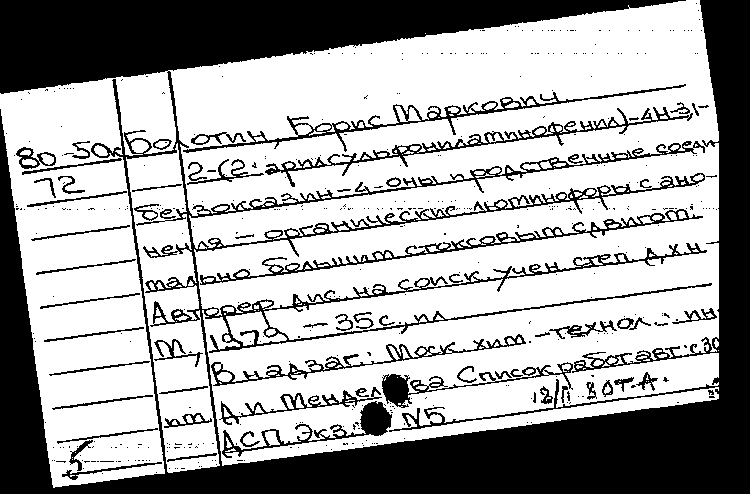 80-50к Болотин, Борис Маркович
72 2-(2'-арилсульфониламинофенил)-4Н-3,1-
бензоксазин-4-оны и родственные соеди-
нения - органические люминофоры с ано-
мально большим стоксовым сдвигом:
Автореф. дис. на соиск. учен. степ. д.х.н
М., 1979. - 35 с., ил
В надзаг.: Моск. хим.-технол. ин-
т им. Д.И. Менделеева. Список работ авт.: с. 30
ДСП. Экз. N5. 18/II 80 Т.А.
5